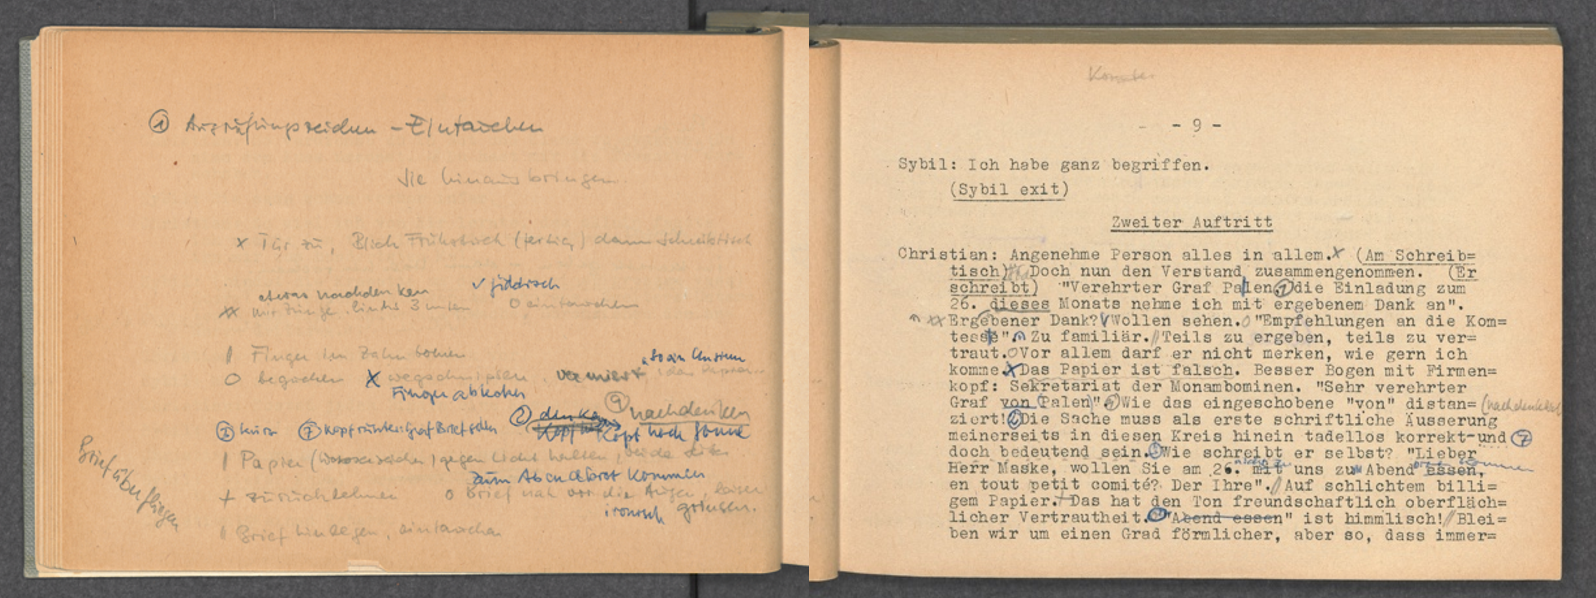 ① Ausrufungszeichen - Eintauchen
Sie hinaus bringen.
x Tür zu, Blick Frühstück (fertig) dann Schreibtisch
etwas nachdenken √ jiddisch
xx mit Zunge, links 3 unten O eintauchen
|| Finger im Zahn bohren
O begucken X wegschnipsen,
Finger ablecken
② denken ⑨ nachdenken
Kopf hoch Sonne
| Papier gegen Licht halten, beide Seiten
zum Abendbrot kommen
+ zurücklehnen O Brief nah vor die Augen, leise
ironisch grinsen.
|| Brief hinlegen, eintauchen
Brief überfliegen
- 9 -
Sybil: Ich habe ganz begriffen.
(Sybil exit)
Zweiter Auftritt
Christian: Angenehme Person alles in allem.x (Am Schreib=
tisch) Doch nun den Verstand zusammengenommen. (Er
schreibt) "Verehrter Graf Palen,① die Einladung zum
26. dieses Monats nehme ich mit ergebenem Dank an".
xx Ergebener Dank?√ Wollen sehen.O "Empfehlungen an die Kom=
tesse". Zu familiär.|| Teils zu ergeben, teils zu ver=
traut.O Vor allem darf er nicht merken, wie gern ich
komme.X Das Papier ist falsch. Besser Bogen mit Firmen=
kopf: Sekretariat der Monambominen. "Sehr verehrter
Graf von Palen". Wie das eingeschobene "von" distan= (nachdenken)
ziert!② Die Sache muss als erste schriftliche Äusserung
meinerseits in diesen Kreis hinein tadellos korrekt-und ⑦
doch bedeutend sein. Wie schreibt er selbst? "Lieber
Herr Maske, wollen Sie am 26. mit uns zu Abend essen,
en tout petit comité? Der Ihre".|| Auf schlichtem billi=
gem Papier.+ Das hat den Ton freundschaftlich oberfläch=
licher Vertrautheit. "Abend essen" ist himmlisch!|| Blei=
ben wir um einen Grad förmlicher, aber so, dass immer=